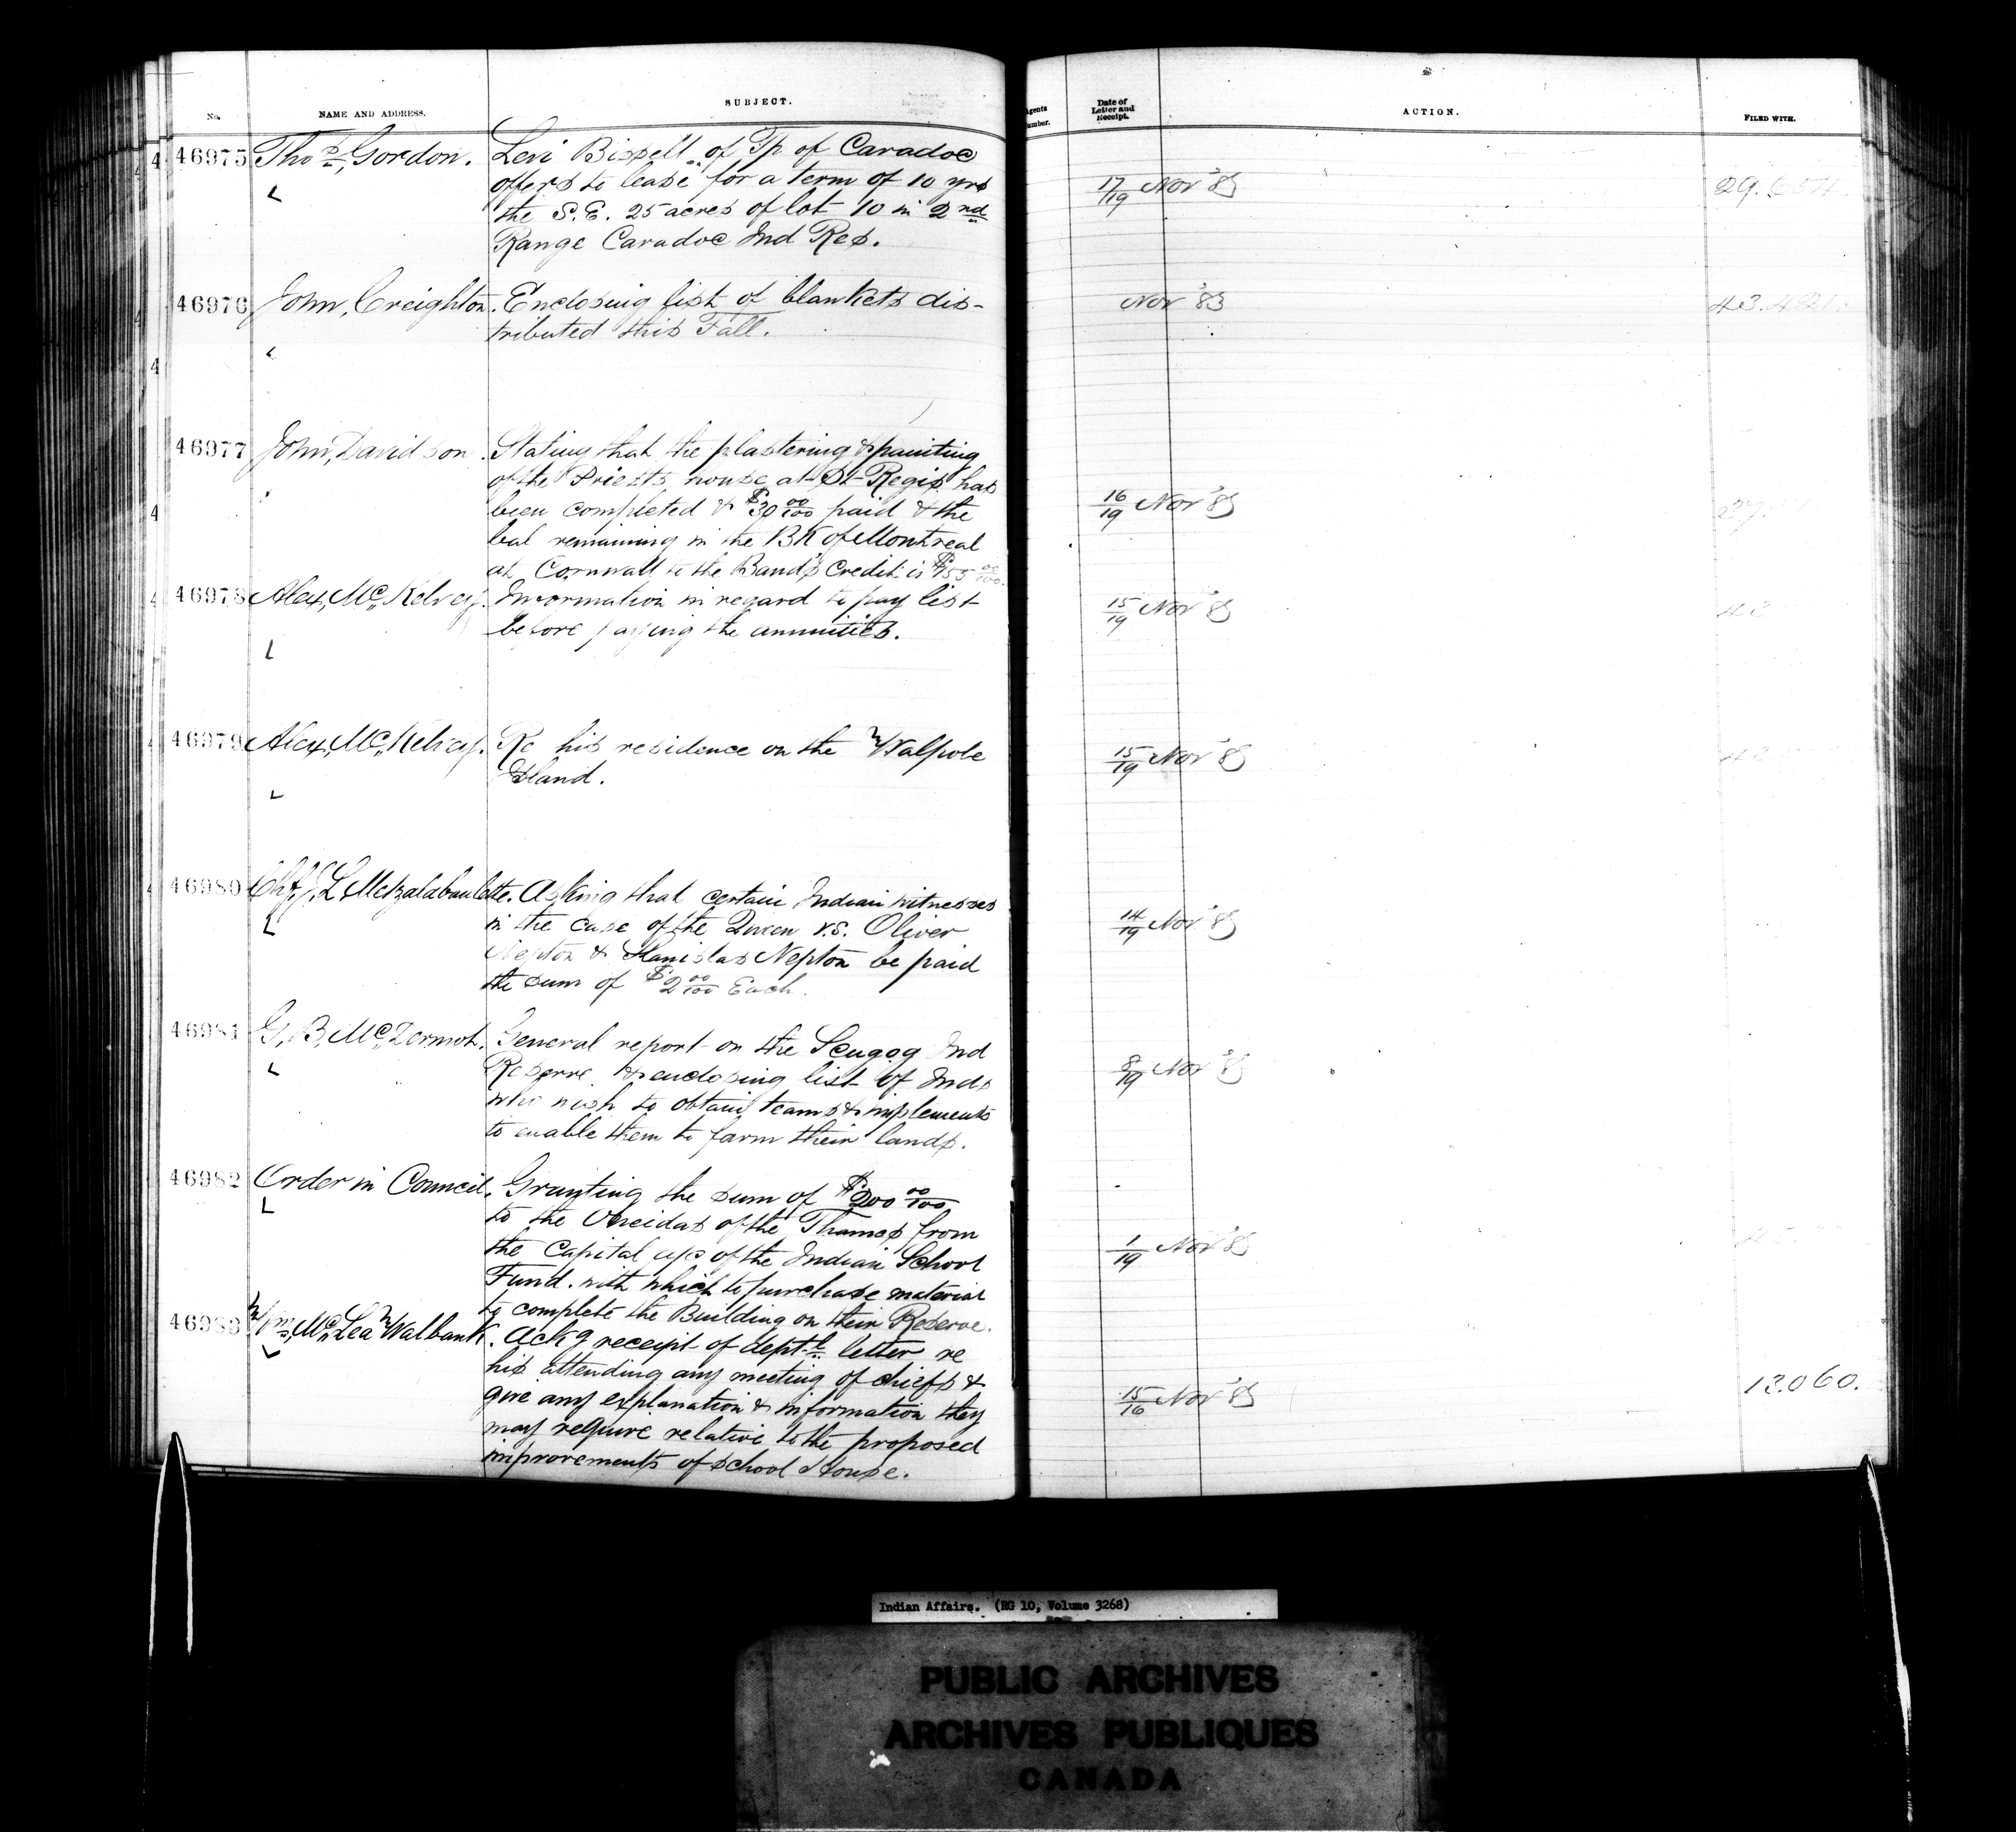 No. NAME AND ADDRESS. SUBJECT.
Agents Number. Date of Letter and Receipt. ACTION. FILED WITH.
46975 Thos. Gordon. Levi Bissell of Tp of Caradoc
offers to lease for a term of 10 yrs
the S.E. 25 acres of lot 10 in 2nd
Range Caradoc Ind Res.
17/19 Nov '83 29.
46976 John, Creighton. Enclosing list of blankets dis-
tributed this Fall.
Nov '83 43.
46977 John, Davidson. Stating that the plastering & painting
of the Priests house at St-Regis has
been completed & $30 00/100 paid & the
bal remaining in the BK of Montreal
at Cornwall to the Band's Credit is $155 00/100.
16/19 Nov '83
46978 Alex, McKelvey. Information in regard to pay list
before paying the annuities.
15/19 Nov '83
46979 Alex, McKelvey. Re his residence on the Walpole
Island.
15/19 Nov '83
46980 Chf, J. L. Asking that certain Indian witnesses
in the case of the Queen v.s. Oliver
Nepton & Stanislas Nepton be paid
the sum of $2 00/100 Each.
14/19 Nov '83
46981 G, B, McDermot. General report on the Scugog Ind
Reserve. & enclosing list of Inds
who wish to obtain teams & implements
to enable them to farm their lands.
8/19 Nov '83
46982 Order in Council. Granting the sum of $200 00/100
to the Oneidas of the Thames from
the Capital a/c of the Indian School
Fund. with which to purchase material
to complete the Building on their Reserve.
1/19 Nov '83
46983 Wm, McLea Walbank. Ackg receipt of deptl letter re
his attending any meeting of chiefs &
give any explanation & information they
may require relative to the proposed
improvements of school House.
15/16 Nov '83 13.060.
Indian Affairs. (RG 10, Volume 3268)
PUBLIC ARCHIVES
ARCHIVES PUBLIQUES
CANADA